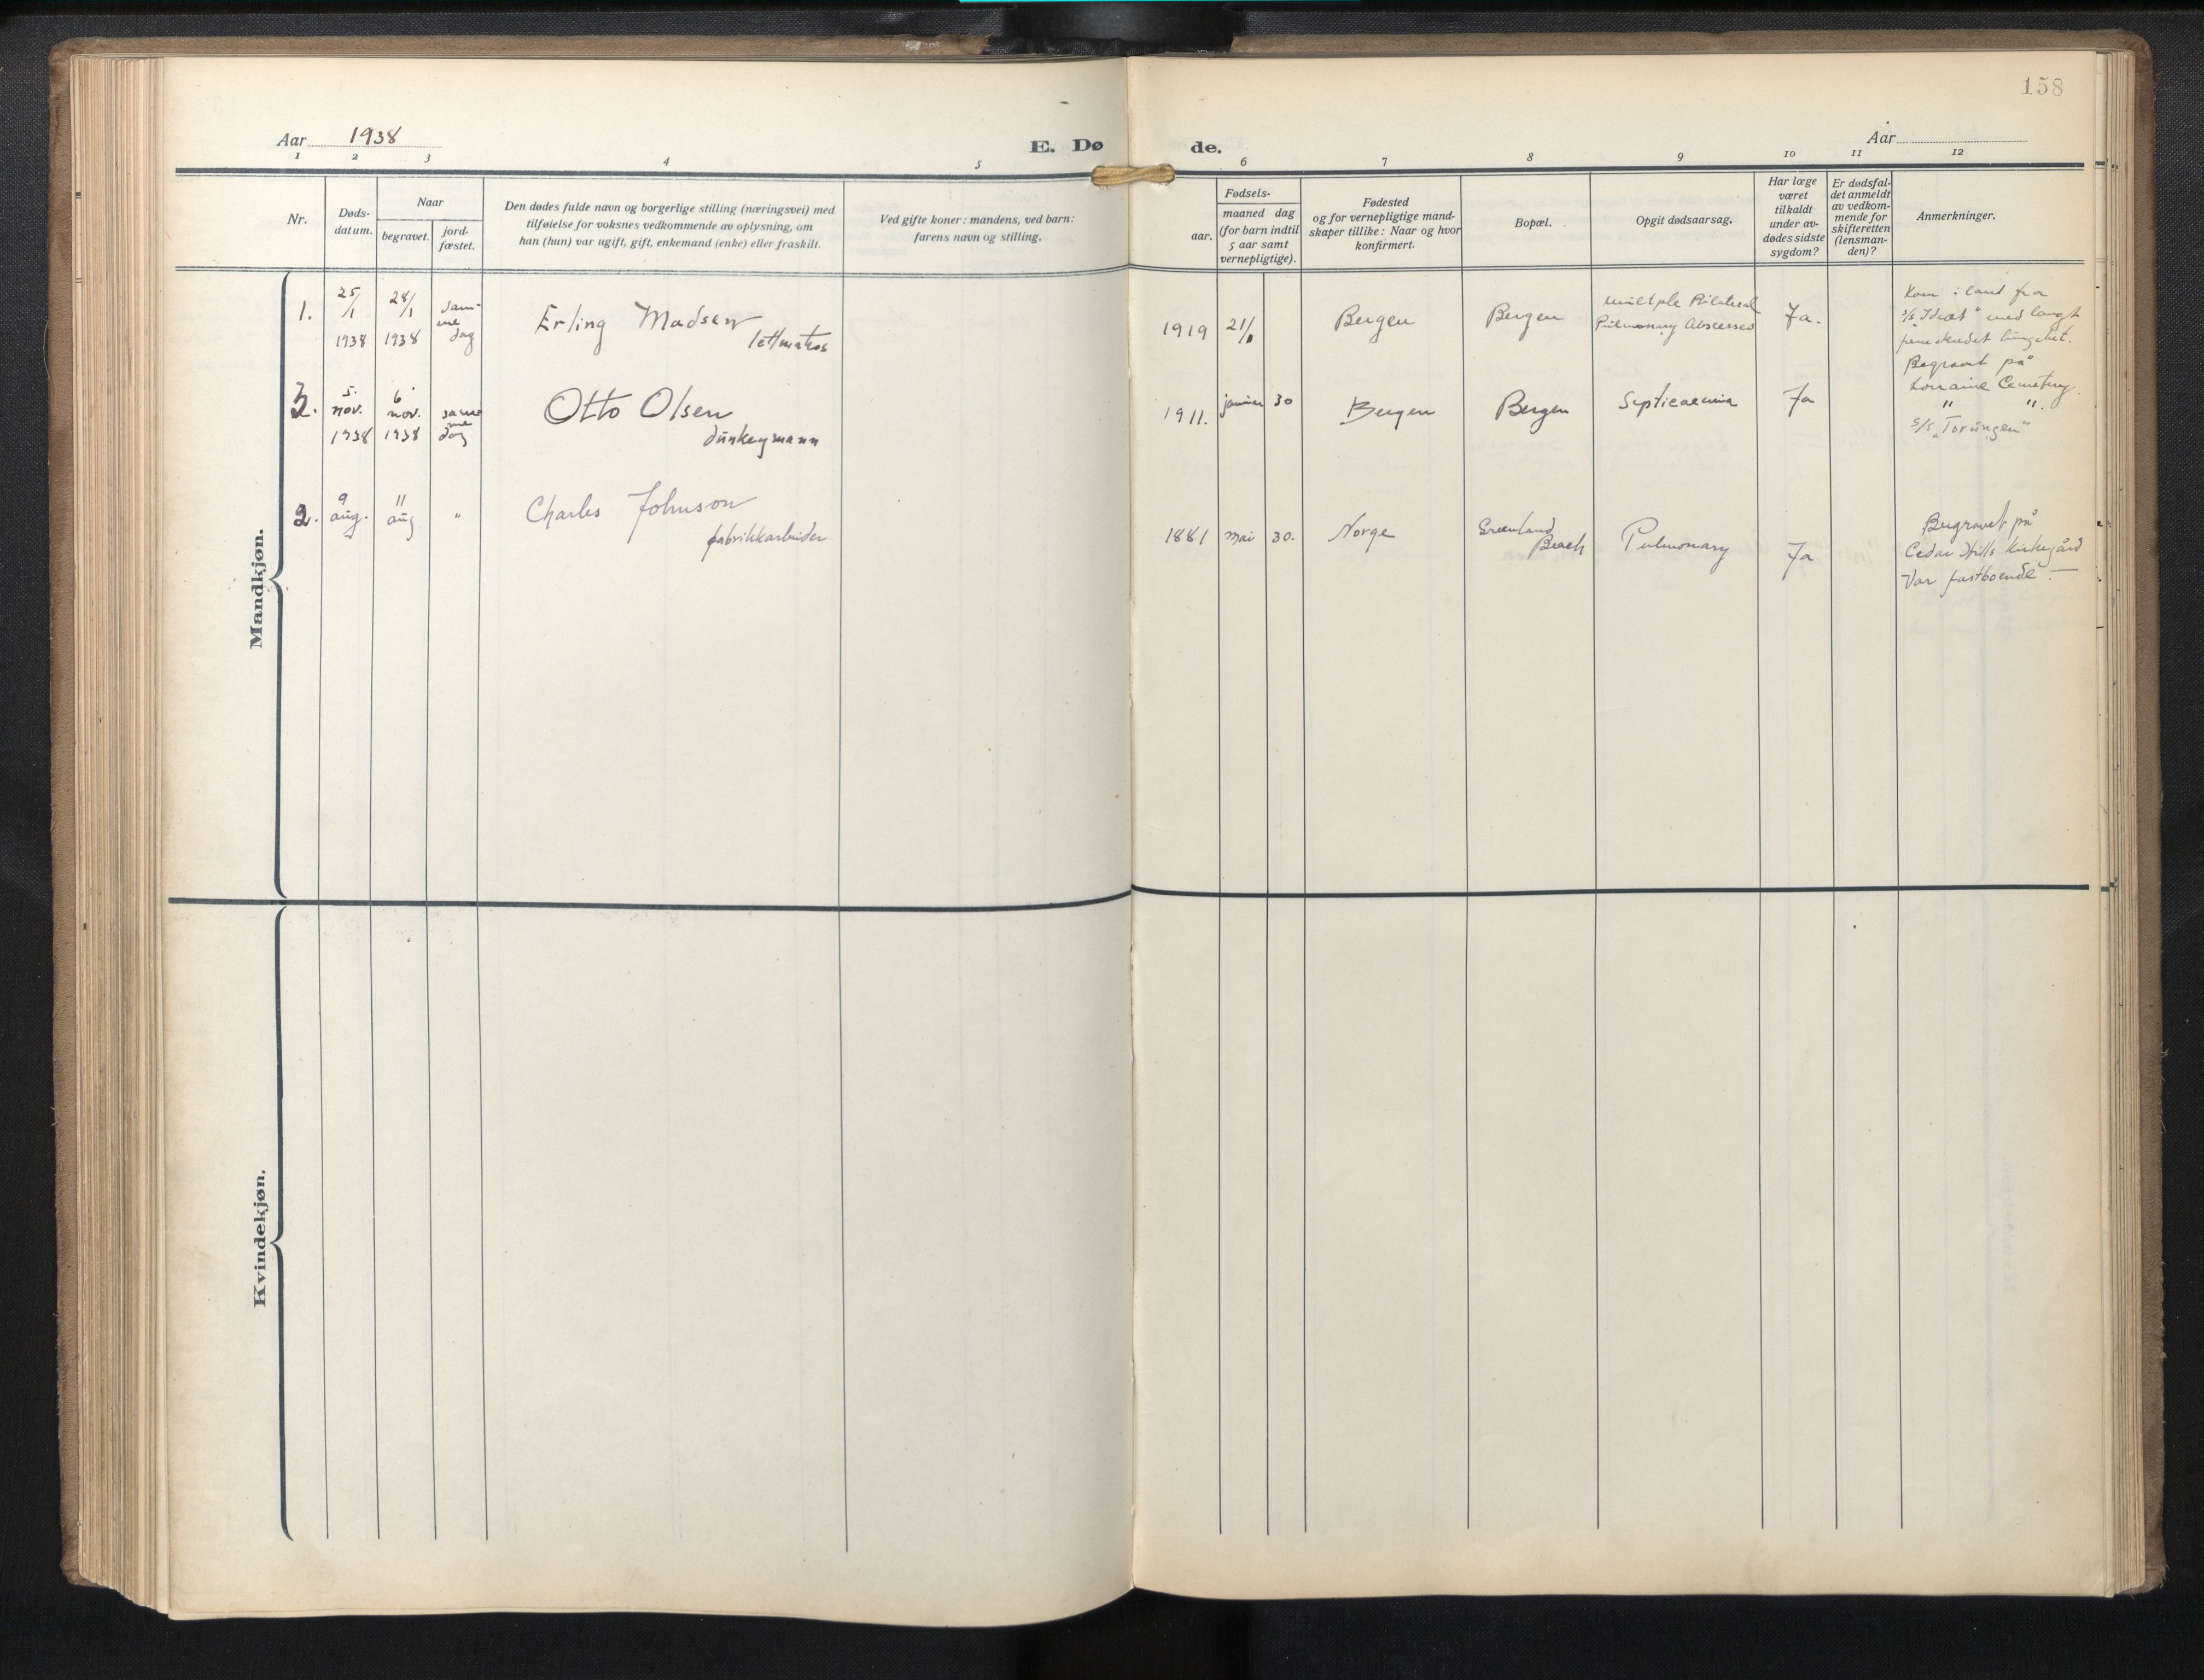 158
Aar 1938
E. Dø
de.
Aar
1 2 3 4 5
6 7 8 9 10 11 12
Nr.
Døds-
datum.
Naar
begravet.
jord-
fæstet.
Den dødes fulde navn og borgerlige stilling (næringsvei) med
tilføielse for voksnes vedkommende av oplysning, om
han (hun) var ugift, gift, enkemand (enke) eller fraskilt.
Ved gifte koner: mandens, ved barn:
farens navn og stilling.
Fødsels-
aar.
maaned dag
(for barn indtil
5 aar samt
vernepligtige).
Fødested
og for vernepligtige mand-
skaper tillike: Naar og hvor
konfirmert.
Bopæl.
Opgit dødsaarsag.
Har læge
været
tilkaldt
under av-
dødes sidste
sygdom?
Er dødsfal-
det anmeldt
av vedkom-
mende for
skifteretten
(lensman-
den)?
Anmerkninger.
Mandkjøn.
1.
25/1
1938
28/1
1938
sam-
me
dag
Erling Madsen
lettmatros
1919
21/1
Bergen
Bergen
multple Bilateral
Pulmonary Abscesses
Ja.
Kom i land fra
s/s "Idræt" med langt
fremskredet
Begravet på
Lorraine Cemetery
3.
5.
nov.
1938
6.
nov.
1938
samme
dag
Otto Olsen
dunkeymann
1911.
januar
30
Bergen
Bergen
Septicaemia
Ja
" ".
S/S "Torungen"
2.
9
aug.
11
aug
"
Charles Johnson
fabrikkarbeider
1881
mai
30.
Norge
Greenland
Beach
Pulmonary
Ja
Begravet på
Cedar Hills kirkegård
Var fastboende. —
Kvindekjøn.